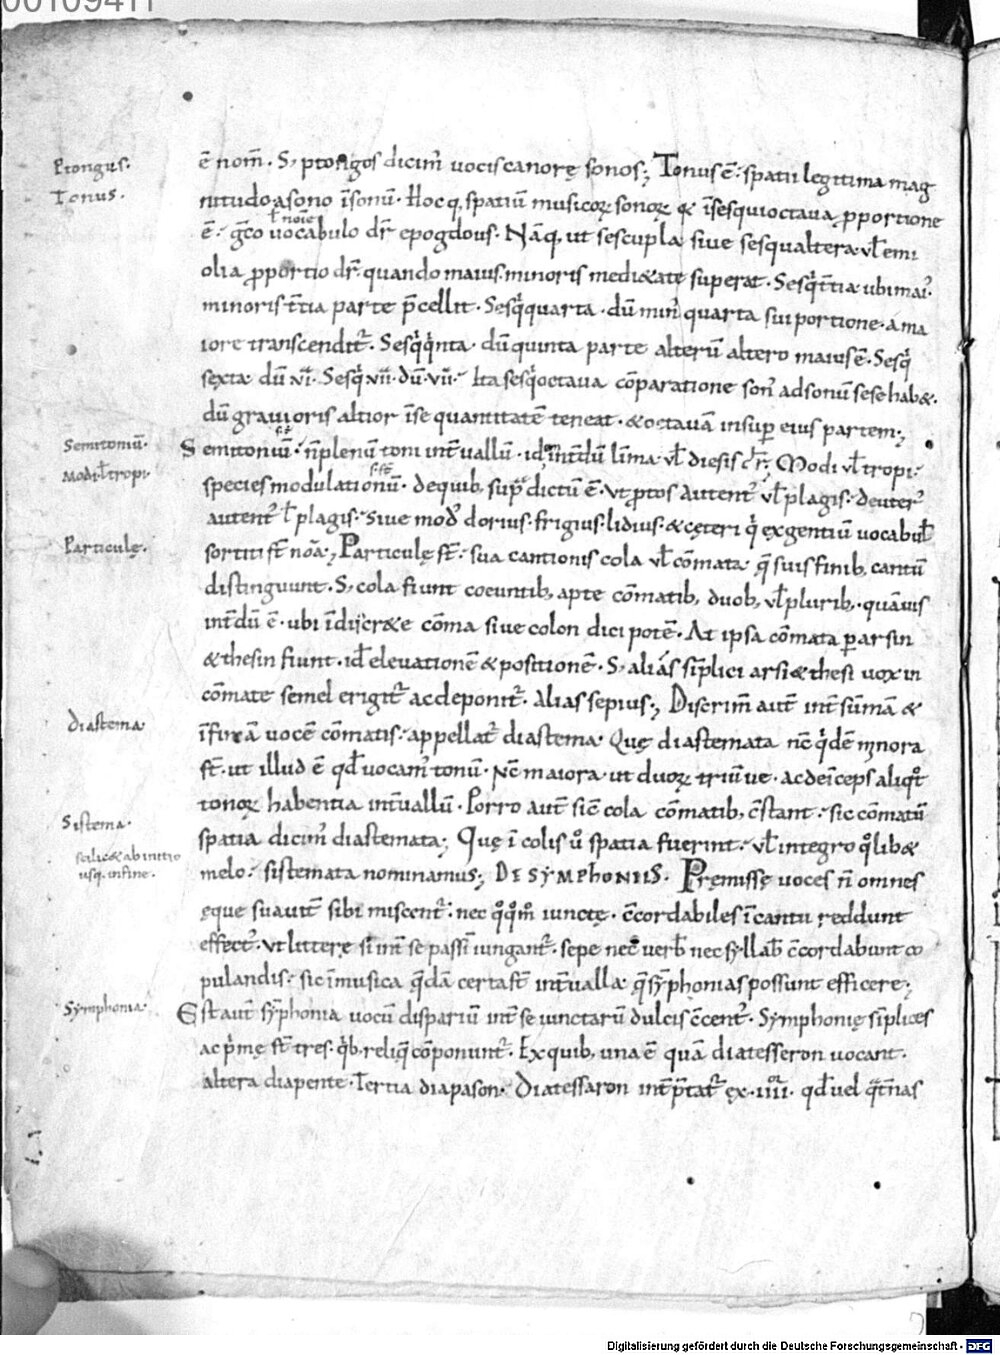 00109411
Ptongus.
ē nom̄. S; ptongos dicim̄ vocis canorę sonos; Tonus ē spatii legitima mag
Tonus.
nitudo a sono ī sonū. Hoc q, spatiū musicoꝝ sonoꝝ & ī sesquioctava ꝓportione
ł noīe
ē. gc̄o vocabulo dr̄ epogdous. Nāq, ut sescupla sive sesqualtera vł emi
olia ꝓportio dr̄ quando maius minoris medi&ate superat. Sesq̄tīa ubi mai᷒
minoris t̄tia parte p̄cellit. Sesq̄quarta dū min᷒ quarta sui portione a ma
iore transcendit᷒. Sesq̄q̄nta dū quinta parte alterū altero maius ē. Sesq̄
sexta dū vi. Sesq̄ vii. dū vii. Ita sesq̄octava cōparatione son᷒ ad sonū sese hab&.
dū gravioris altior ī se quantitatē teneat. & octavā insuꝑ eius partem;
Semitoniū.
Semitoniū. n̄ plenū toni int̄vallū. id int̄dū līma vł diesis dr̄; Modi vł tropi.
Modi ł tropi.
species modulationū. de quib, sup᷒ dictū ē. Ut ptos autent᷒ vł plagis. deuter᷒
autent᷒ ł plagis. sive mod᷒ dorius. frigius. lidius. & cęteri q̄ ex gentiū vocabuł
Particulę.
sortiti st̄ noā; Particulę st̄. sua cantionis cola vł cōmata. q̄ suis finib, cantū
distinguunt. S; cola fiunt coeuntib, apte cōmatib, duob, vł plurib,. quāvis
int̄dū ē. ubi īdiscr&e cōma sive colon dici potē. At ipsa cōmata ꝑ arsin
& thesin fiunt. id ē elevationē & positionē. S; aliās sīplici arsi & thesi vox in
cōmate semel erigit᷒ ac deponit᷒. Alias sepius; Discrim̄ aut̄ int̄ sūmā &
Diastema
īfimā vocē cōmatis. appellat᷒ diastema. Quę diastemata nc̄ q̄dē minora
st̄. ut illud ē qd̄ vocam᷒ tonū. Nc̄ maiora. ut duoꝝ triūve. ac deīceps aliqt̊
tonoꝝ habentia int̄vallū. Porro aut̄ sic̄ cola cōmatib, c̄stant. sic cōmatū
Sistema.
spatia dicim᷒ diastemata; Quę ī colis v̊ spatia fuerint. vł integro qͦlib&
scilic& ab initio
usq, in fine.
melo. sistemata nominamus; DE SYMPHONIIS. Pręmissę voces n̄ omnes
ęque suavit̄ sibi miscent᷒. nec qͦqͦm̄ iunctę. c̄cordabiles ī cantu reddunt
effect᷒. Ut litterę si int̄ se passī iungant᷒. sepe nec verb̄ nec syllab̄ c̄cordabunt co
pulandis. sic ī musica q̄dā certa st̄ int̄valla q̄ sȳphonias possunt efficere;
Symphonia.
Est aut̄ sȳphonia vocū dispariū int̄ se iunctarū dulcis c̄cent᷒. Symphonię sīplices
ac p̄mę st̄ tres. q̄b, reliq̄ cōponunt᷒. Ex quib, una ē quā diatesseron vocant.
altera diapente. Tertia diapason. Diatessaron int̄p̄tat᷒ ex .iiii. qd̄ vel q̄t̄nas
Digitalisierung gefördert durch die Deutsche Forschungsgemeinschaft - DFG